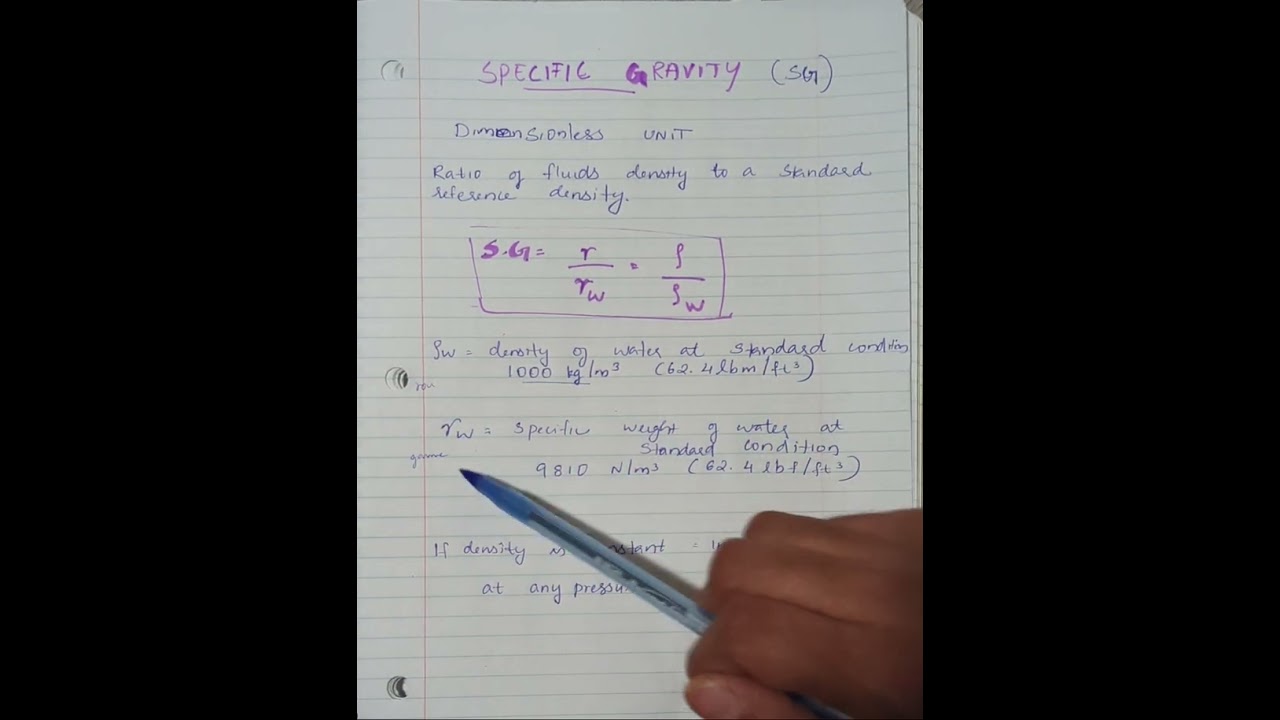 SPECIFIC GRAVITY (SG)
Dimensionless UNIT
Ratio of fluids density to a standard
reference density.
S.G = γ/γw = ρ/ρw
ρw = density of water at standard condition
1000 kg/m³ (62.4 lbm/ft³)
rou
γw = specific weight of water at
standard condition
9810 N/m³ (62.4 lbf/ft³)
If density is =
at any